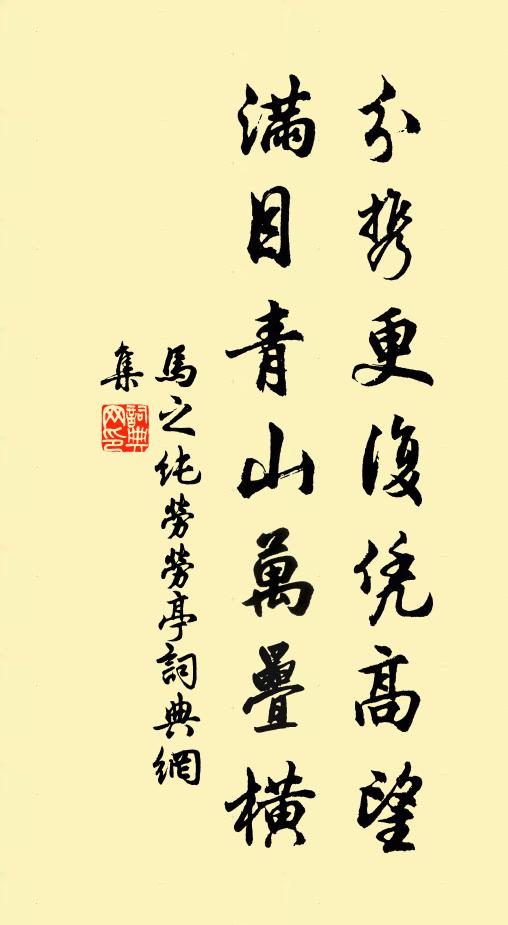 分携更復凭高望
滿目青山萬疊橫
馬之純勞勞亭詞典網
集
詞典網印